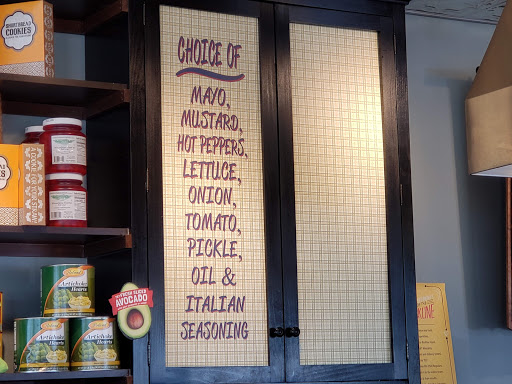 CHOICE OF
MAYO,
MUSTARD,
HOT PEPPERS,
LETTUCE,
ONION,
TOMATO,
PICKLE,
OIL &
ITALIAN
SEASONING
SHORTBREAD
COOKIES
AVOCADO
Artichoke
Hearts
Artichoke
Hearts
Artichoke
Hearts